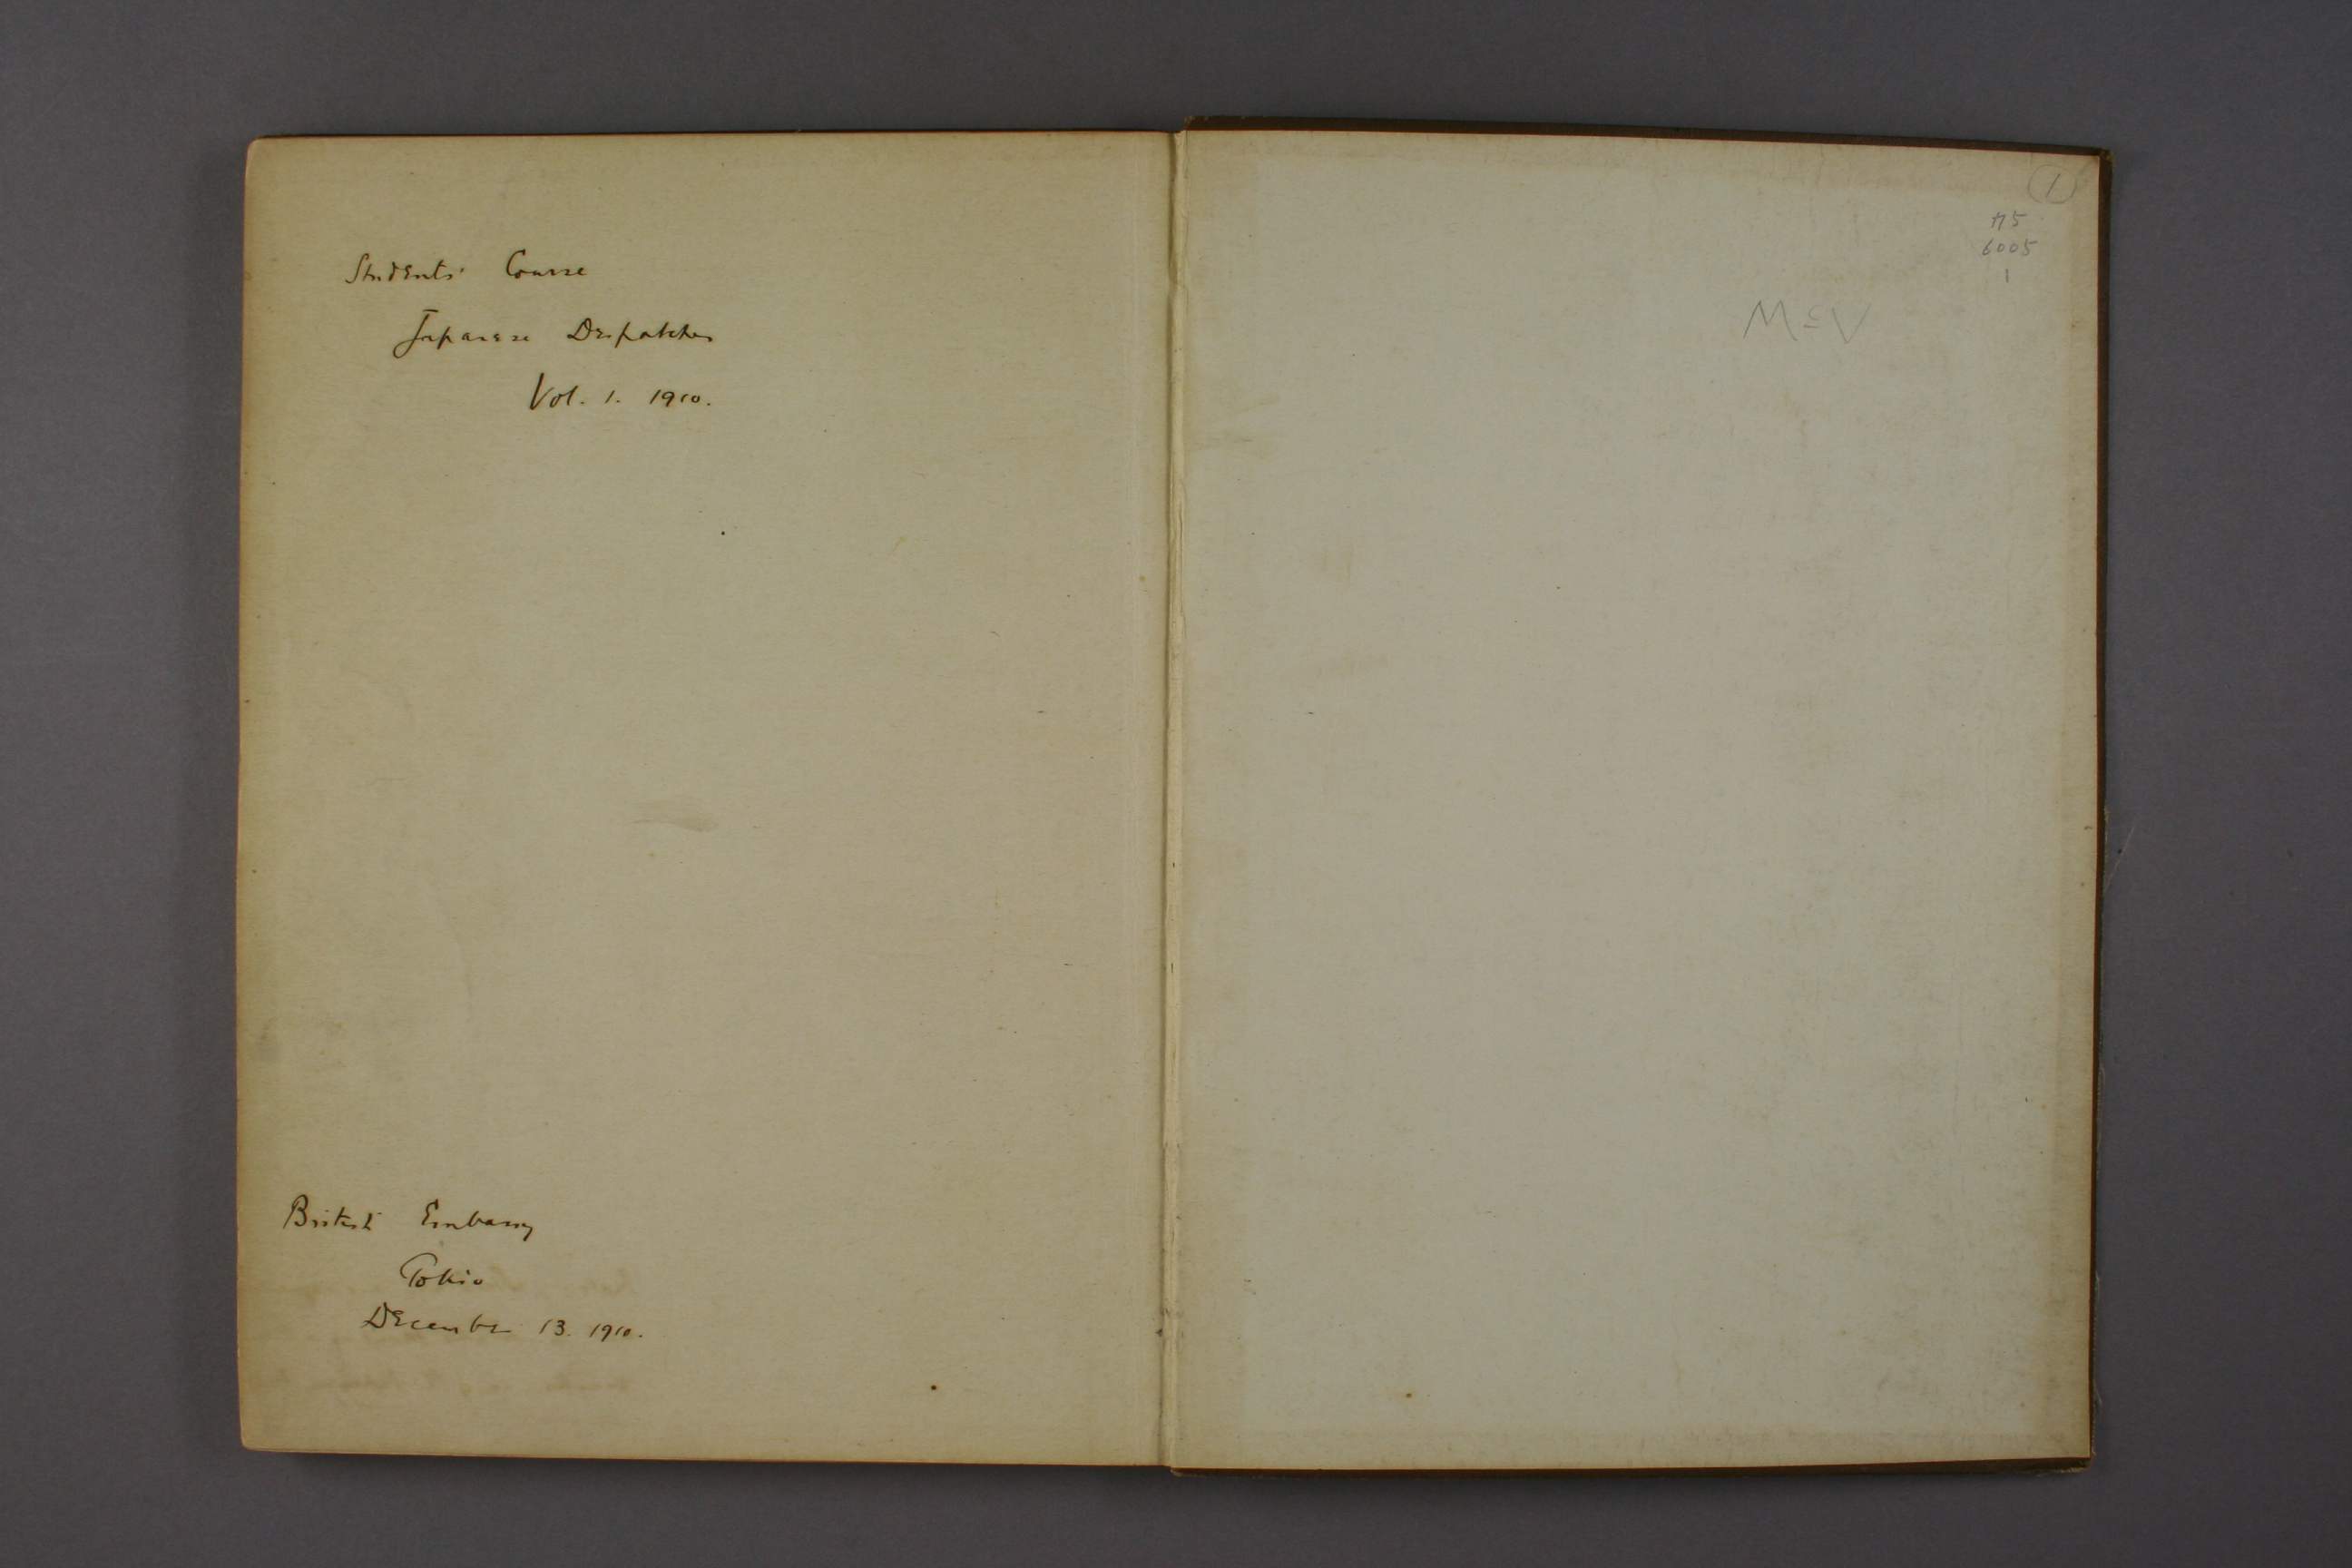 Students' Course
Japanese Despatches
Vol. 1. 1910.
British Embassy
Tokio
December 13. 1910.
1
6005
1
McV